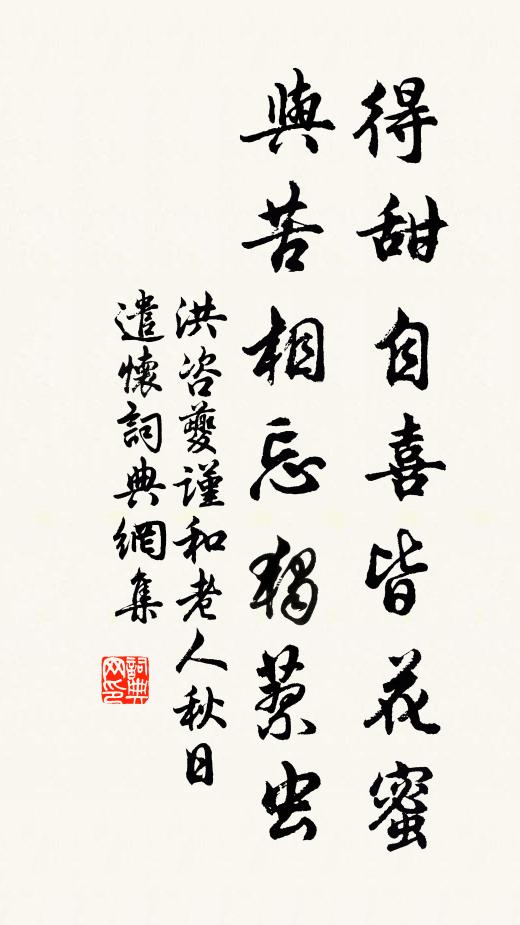 得甜自喜皆花蜜
與苦相忘獨蓼虫
洪咨夔謹和老人秋日
遣懷詞典網集
詞典网印